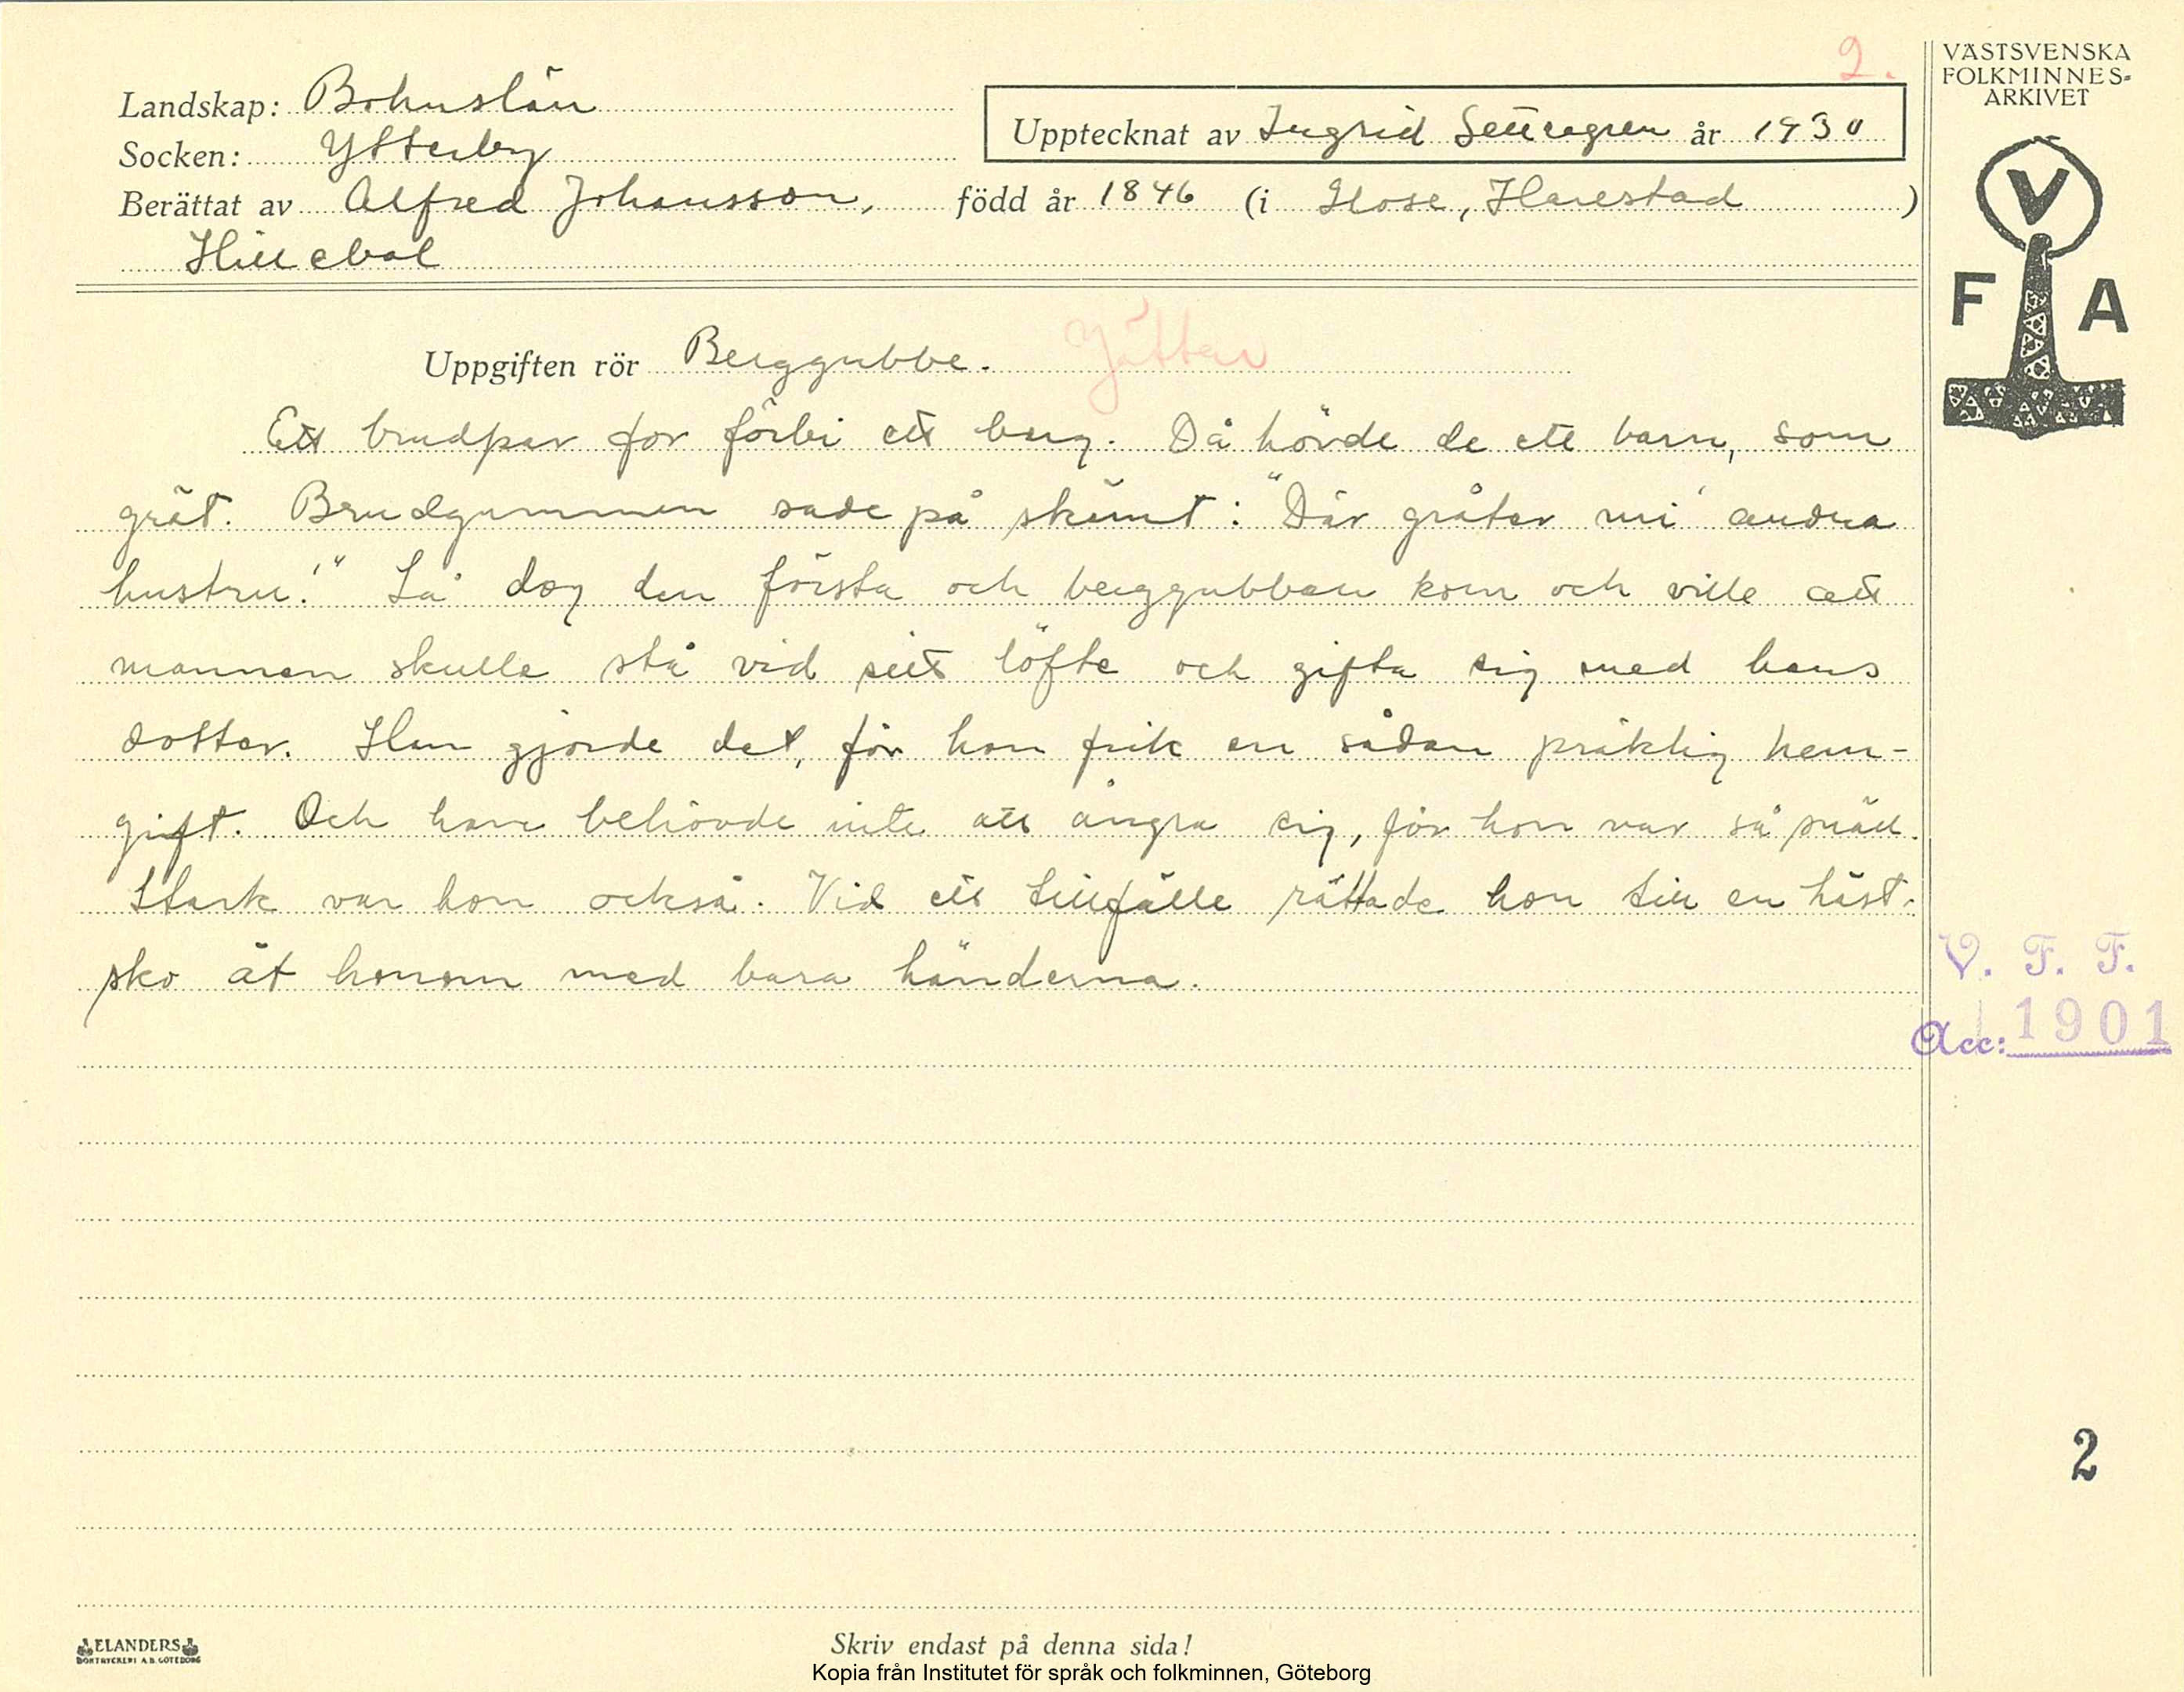 2.
VÄSTSVENSKA
FOLKMINNES-
ARKIVET
Landskap: Bohuslän
Upptecknat av Ingrid år 1930
Socken: Ytterby
Berättat av Alfred Johansson, född år 1846 (i Glose, Harestad )
V
F A
Uppgiften rör Berggubbe. Jättar
Ett brudpar for förbi ett berg. Då hörde de ett barn, som
grät. Brudgummen sade på skämt: "Där gråter mi' andra
hustru!" Så dog den första och berggubben kom och ville att
mannen skulle stå vid sitt löfte och gifta sig med hans
dotter. Han gjorde det, för hon fick en sådan präktig hem-
gift. Och han behövde inte att ångra sig, för hon var så snäll.
Stark var hon också. Vid ett tillfälle rättade hon till en häst-
sko åt honom med bara händerna.
V. F. F.
Acc: 1901
2
ELANDERS
BOKTRYCKERI A.B. GÖTEBORG
Skriv endast på denna sida!
Kopia från Institutet för språk och folkminnen, Göteborg